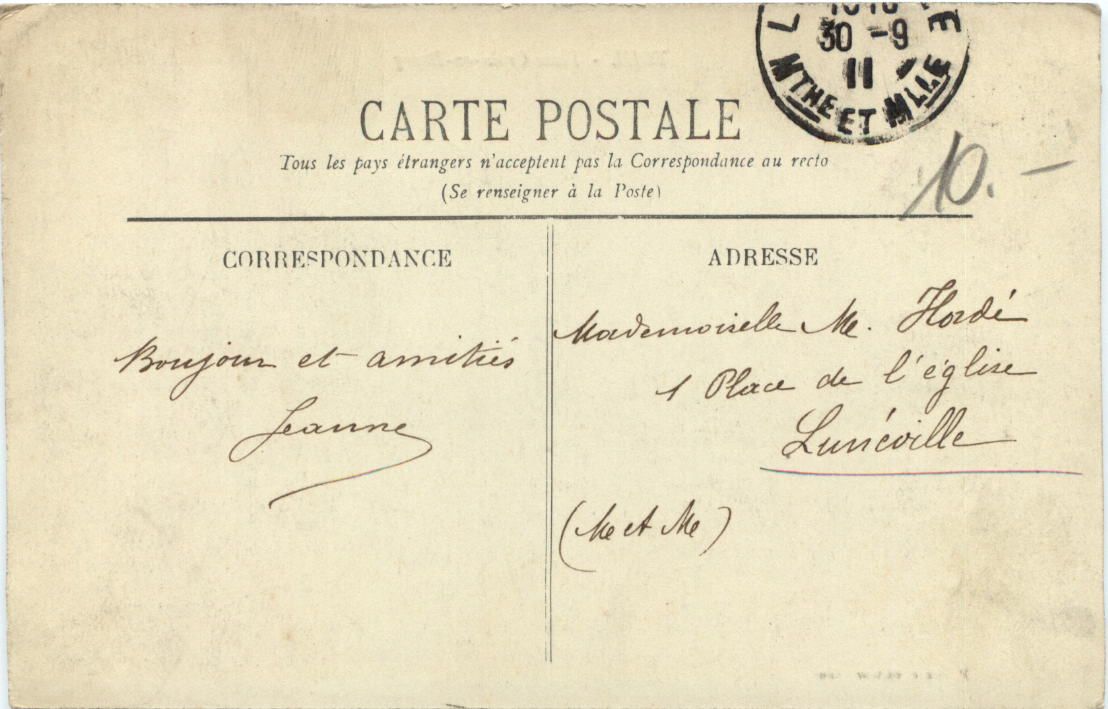 30 - 9
11
MTHE ET MLLE
CARTE POSTALE
Tous les pays étrangers n'acceptent pas la Correspondance au recto
(Se renseigner à la Poste)
10.-
CORRESPONDANCE
Boujour et amitiés
Jeanne
ADRESSE
Mademoiselle M. Hordé
1 Place de l'église
Lunéville
(M et M)